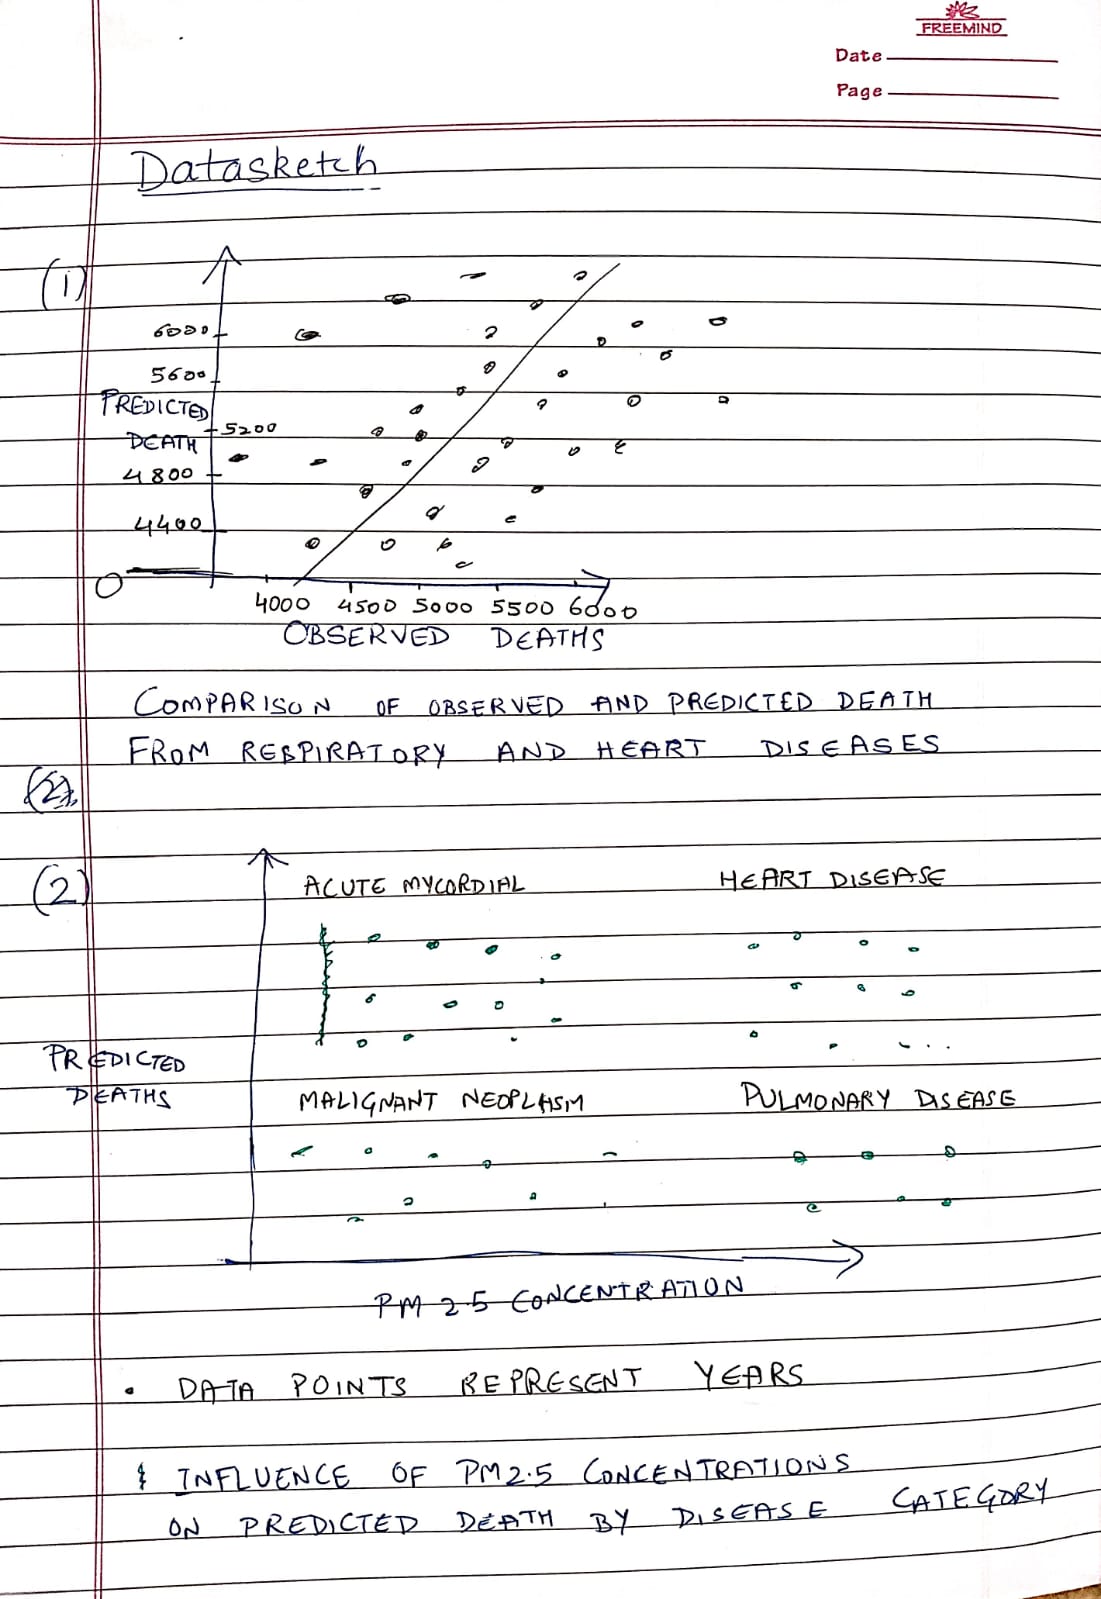 FREEMIND
Date
Page
Datasketch
(1)
6000
5600
PREDICTED
5200
DEATH
4800
4400
O
4000 4500 5000 5500 6000
OBSERVED DEATHS
COMPARISON OF OBSERVED AND PREDICTED DEATH
FROM RESPIRATORY AND HEART DISEASES
(2)
(2)
ACUTE MYCORDIAL HEART DISEASE
PREDICTED
DEATHS
MALIGNANT NEOPLASM PULMONARY DISEASE
PM 2.5 CONCENTRATION
• DATA POINTS REPRESENT YEARS
INFLUENCE OF PM2.5 CONCENTRATIONS
ON PREDICTED DEATH BY DISEASE CATEGORY